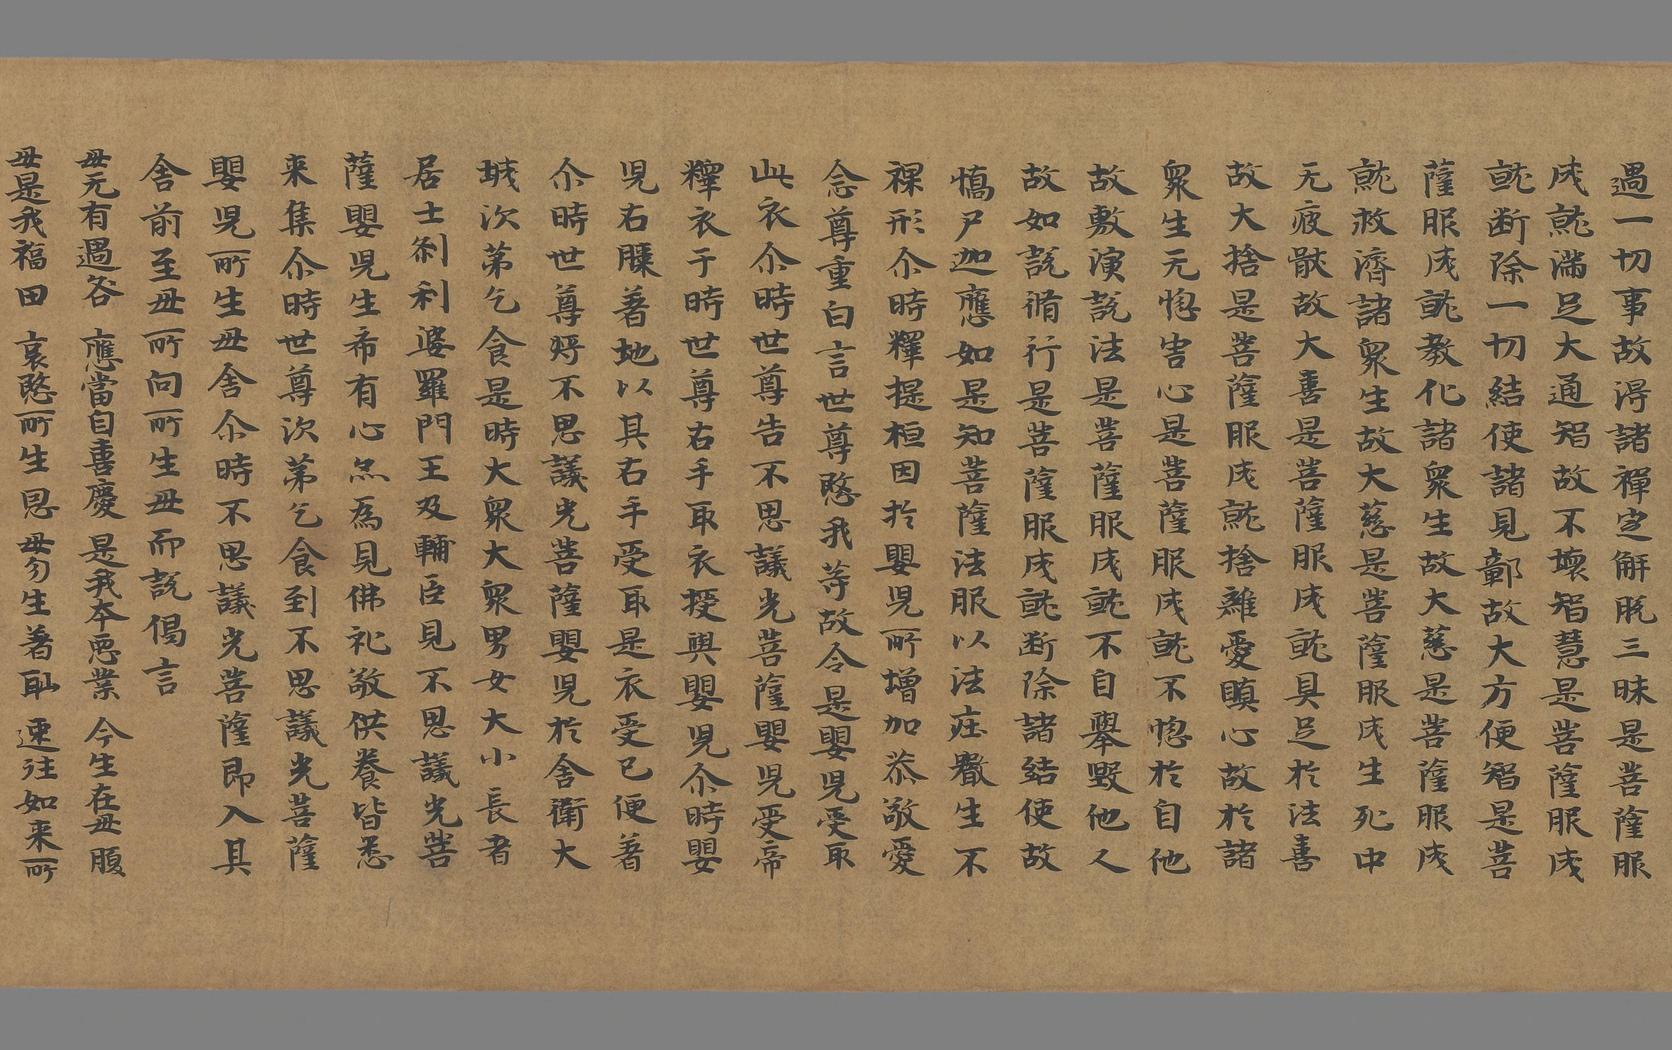 過一切事故得諸禪定解脫三昧是菩薩服
成就滿足大通智故不壞智慧是菩薩服成
就断除一切結使諸見鄣故大方便智是菩
薩服成就教化諸衆生故大慈是菩薩服成
就救濟諸衆生故大慈是菩薩服成生死中
无疲猒故大喜是菩薩服成就具足於法喜
故大捨是菩薩服成就捨離愛瞋心故於諸
衆生无惱害心是菩薩服成就不惱於自他
故敷演說法是菩薩服成就不自舉毀他人
故如說脩行是菩薩服成就断除諸結使故
憍尸迦應如是知菩薩法服以法庄嚴生不
裸形尒時釋提桓因於嬰兒所增加恭敬愛
念尊重白言世尊愍我等故令是嬰兒受取
此衣尒時世尊告不思議光菩薩嬰兒受帝
釋衣于時世尊右手取衣授與嬰兒尒時嬰
兒右膝著地以其右手受取是衣受已便著
尒時世尊將不思議光菩薩嬰兒於舍衛大
城次第乞食是時大衆大衆男女大小長者
居士剎利婆羅門王及輔臣見不思議光菩
薩嬰兒生希有心然為見佛礼敬供養皆悉
来集尒時世尊次第乞食到不思議光菩薩
嬰兒所生母舍尒時不思議光菩薩即入其
舍前至母所問所生母而說偈言
母无有過咎 應當自喜慶 是我本惡業 今生在母腹
母是我福田 哀愍所生恩 母勿生著恥 速往如来所